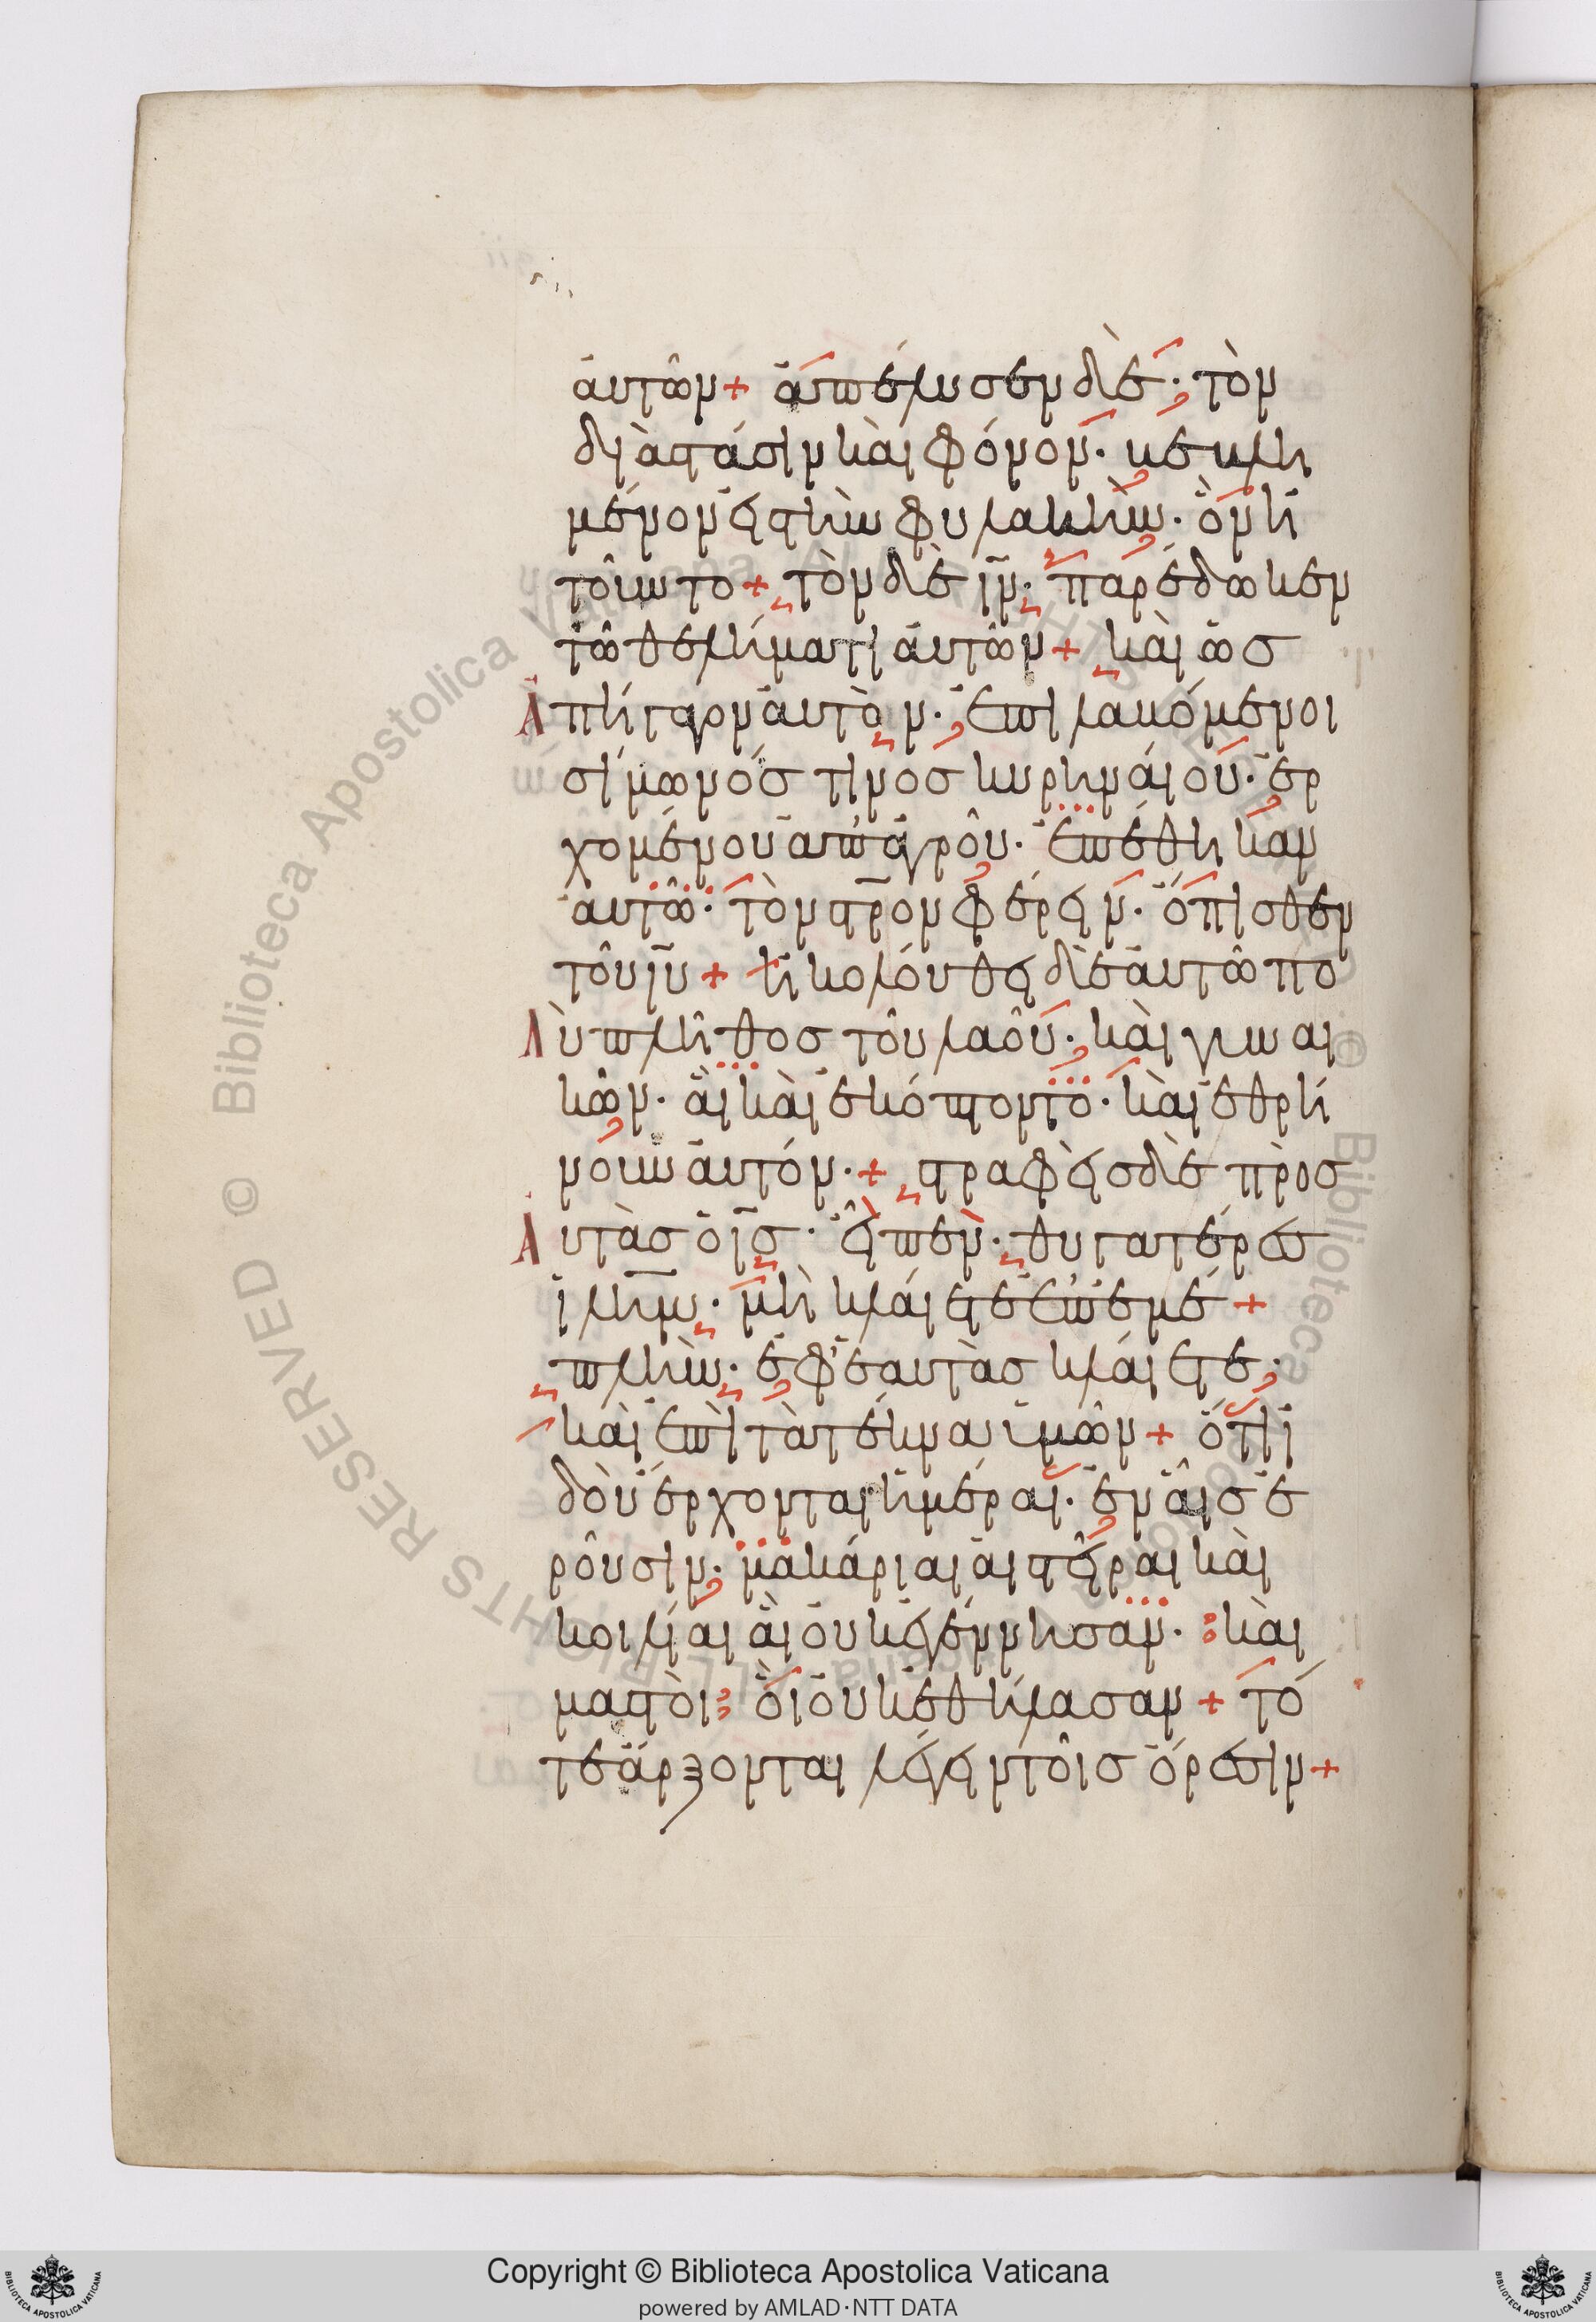 ἀυτῶν + ἀπέλυσεν δὲ· τὸν
διὰ στάσιν καὶ φόνον· βεβλη
μένον εἰς τὴν φυλακὴν· ὃν ἠ
τοῦντο + τὸν δὲ ἰν· παρέδωκεν
τῶ θελήματι ἀυτῶν + καὶ ὡσ
Ἀπήγαγον ἀυτὸν· ἐπιλαβόμενοι
σίμωνόσ τινοσ κυρηναίου· ἐρ
χομένου ἀπ ἀγροῦ· ἐπέθηκαν
ἀυτῶ· τὸν στρον φέρειν· ὄπισθεν
τοῦ ἰυ + ἠκολόυθει δὲ ἀυτῶ πο
Λὺ πλῆθοσ τοῦ λαοῦ· καὶ γυναι
κῶν· ἃι καὶ ἐκόπτοντο· καὶ ἐθρή
νουν ἀυτόν· + στραφεὶς δὲ πρὸσ
Ἀυτὰσ ὁ ἰσ· εἶπεν· θυγατέρεσ
ἰλημ· μὴ κλάιετε ἐπ ἐμέ +
πλὴν· ἐφ ἑαυτὰσ κλάιετε·
καὶ ἐπὶ τὰ τέκνα ὑμῶν + ὅτι ἰ
δοὺ ἔρχονται ἡμέραι· ἐν ἇισ ἐ
ροῦσιν· μακάριαι ἁι στεῖραι καὶ
κοιλίαι ἃι ὀυκ ἐγέννησαν· καὶ
μαστὸι ὃι ὀυκ ἐθήλασαν + τό
τε ἄρξονται λέγειν τοῖσ ὄρεσιν +
Copyright © Biblioteca Apostolica Vaticana
powered by AMLAD·NTT DATA